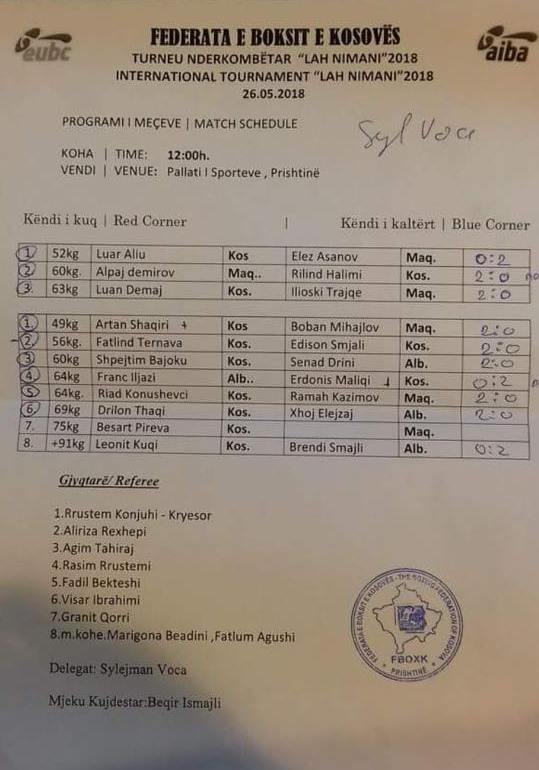 eubc
FEDERATA E BOKSIT E KOSOVËS
aiba
TURNEU NDERKOMBËTAR "LAH NIMANI"2018
INTERNATIONAL TOURNAMENT "LAH NIMANI"2018
26.05.2018
PROGRAMI I MEÇEVE | MATCH SCHEDULE
Syl Voca
KOHA | TIME: 12:00h.
VENDI | VENUE: Pallati I Sporteve , Prishtinë
Këndi i kuq | Red Corner | Këndi i kaltërt | Blue Corner
1. 52kg Luar Aliu Kos Elez Asanov Maq. 0:2
2. 60kg. Alpaj demirov Maq.. Rilind Halimi Kos. 2:0
3. 63kg Luan Demaj Kos. Ilioski Trajqe Maq. 2:0
1. 49kg Artan Shaqiri Kos Boban Mihajlov Maq. 2:0
2. 56kg. Fatlind Ternava Kos. Edison Smjali Kos. 2:0
3. 60kg Shpejtim Bajoku Kos. Senad Drini Alb. 2:0
4. 64kg Franc Iljazi Alb.. Erdonis Maliqi Kos. 0:2
5. 64kg. Riad Konushevci Kos. Ramah Kazimov Maq. 2:0
6. 69kg Drilon Thaqi Kos. Xhoj Elejzaj Alb. 2:0
7. 75kg Besart Pireva Kos. Maq.
8. +91kg Leonit Kuqi Kos. Brendi Smajli Alb. 0:2
Gjyqtarë/ Referee
1.Rrustem Konjuhi - Kryesor
2.Aliriza Rexhepi
3.Agim Tahiraj
4.Rasim Rrustemi
5.Fadil Bekteshi
6.Visar Ibrahimi
7.Granit Qorri
8.m.kohe.Marigona Beadini ,Fatlum Agushi
Delegat: Sylejman Voca
Mjeku Kujdestar:Beqir Ismajli
FEDERATA E BOKSIT E KOSOVËS - THE BOXING FEDERATION OF KOSOVA
FBOXK
PRISHTINË